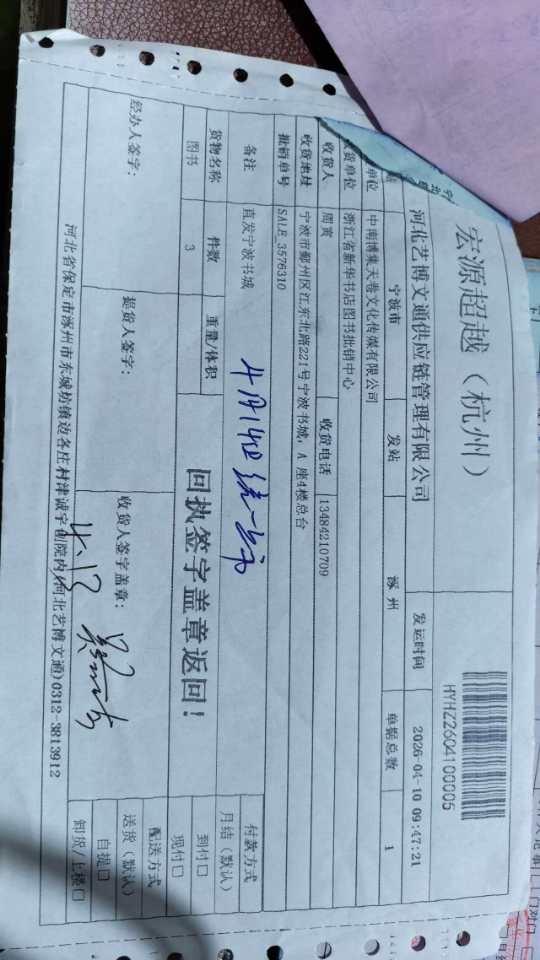 宏源超越（杭州）
HYHZ2604100005
河北艺博文通供应链管理有限公司
发运时间 2026-04-10 09:47:21
站 宁波市 发站 涿州 单据总数 1
单位 中南博集天卷文化传媒有限公司
货单位 浙江省新华书店图书批销中心
收货人 周寅 收货电话 13484210709
收货地址 宁波市鄞州区江东北路221号宁波书城，A座4楼总台
批销单号 SALE_3576310
备注 直发宁波书城
付款方式
月结（默认）
到付口
现付口
货物名称 件数 重量/体积
图书 3
回执签字盖章返回！
配送方式
送货（默认）
自提口
卸货/上楼口
经办人签字： 提货人签字： 收货人签字盖章：
河北省保定市涿州市东城坊镇边各庄村津诚宇创院内(河北艺博文通)0312-3813912